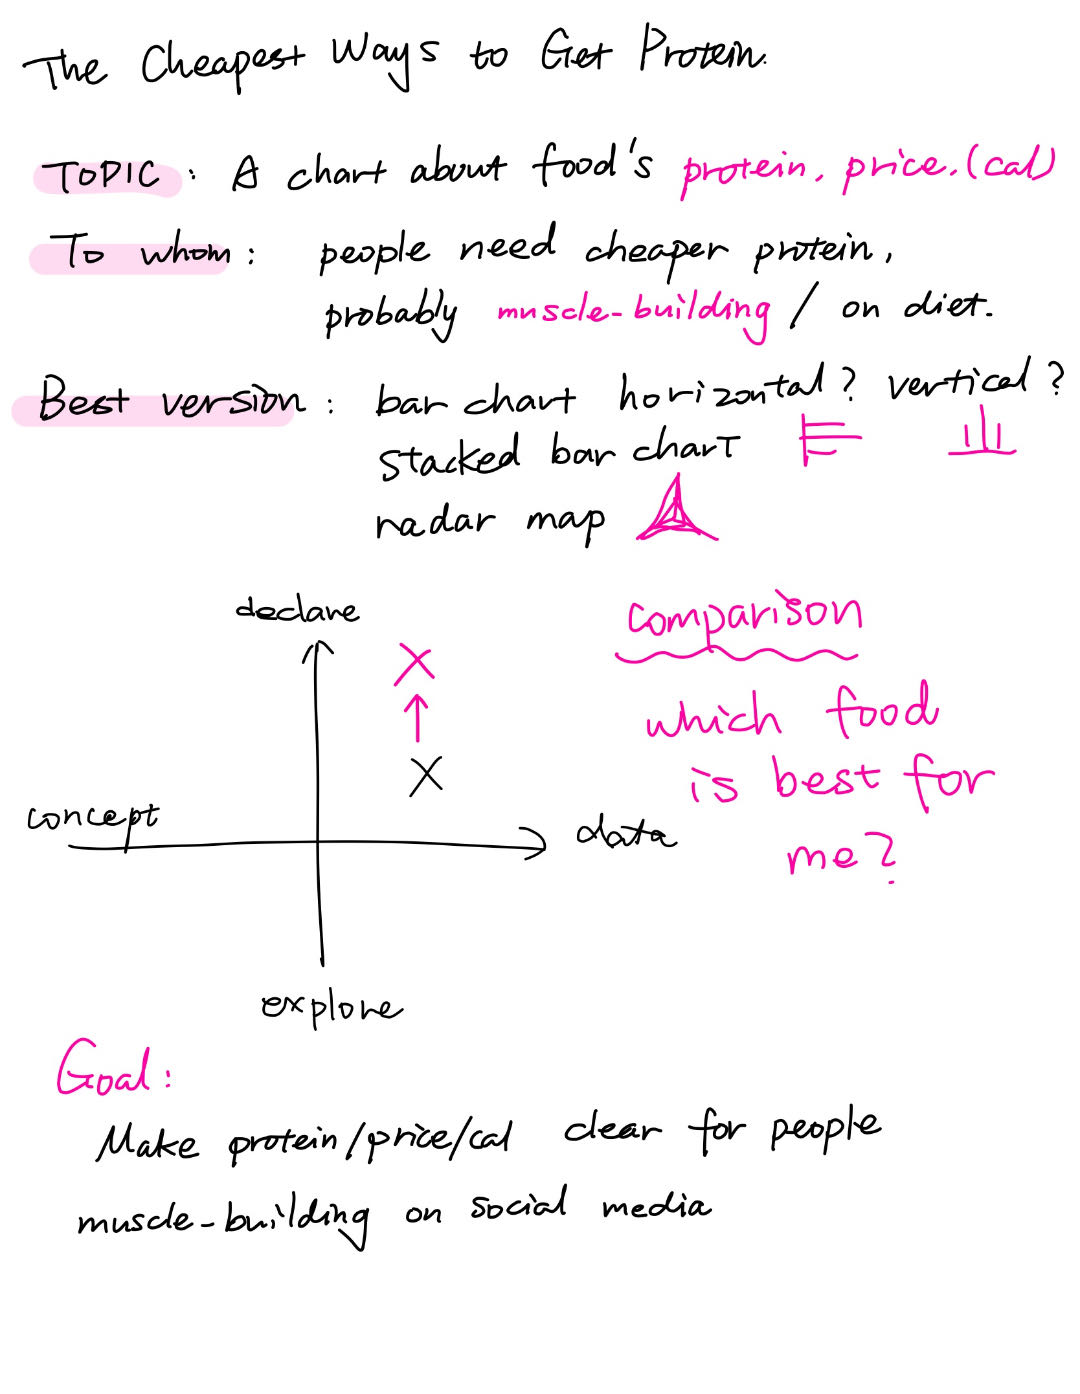 The Cheapest Ways to Get Protein.
TOPIC : A chart about food's protein, price.(cal)
To whom : people need cheaper protein,
probably muscle-building / on diet.
Best version : bar chart horizontal? vertical?
stacked bar chart
radar map
declare
comparison
which food
is best for
me?
concept
data
explore
Goal:
Make protein/price/cal clear for people
muscle-building on social media